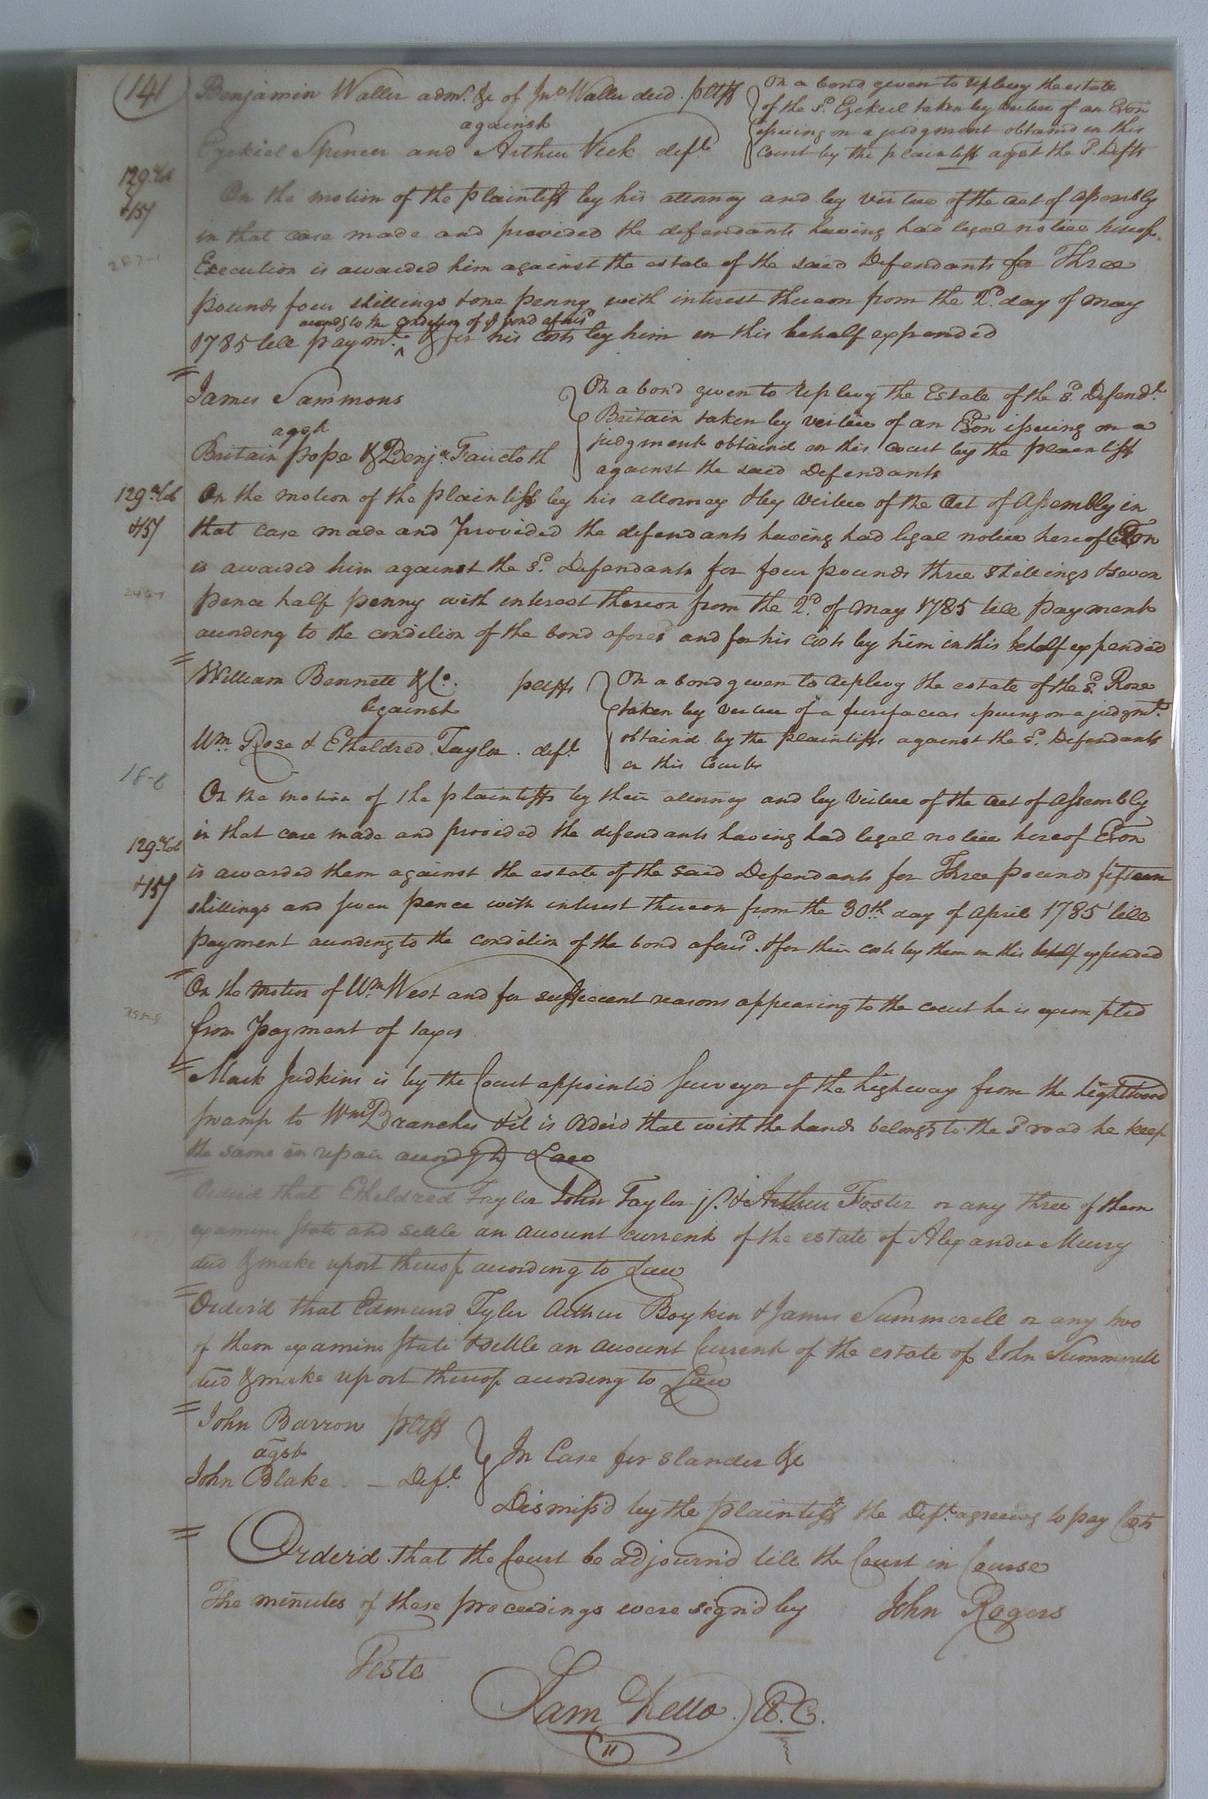 141
Benjamin Waller admr. &c of Jno. Waller decd. pltff
against
Ezekiel Spencer and Arthur Vick defts
On a bond given to replevy the estate
of the sd. Ezekiel taken by virtue of an Exon
issuing on a judgment obtained in this
Court by the plaintiff agst the sd. Defts
129
&15/
On the motion of the plaintiff by his attorney and by virtue of the act of assembly
in that case made and provided the defendants having had legal notice hereof.
Execution is awarded him against the estate of the said Defendants for Three
pounds four shillings & one penny with interest thereon from the 2d. day of may
accordg to the condition of ye bond aforesd
1785 till paymt. ^ & for his costs by him in this behalf expended
James Sammons
agst
Britain pope & Benja. Faircloth
On a bond given to replevy the Estate of the sd. Defendt.
Britain taken by virtue of an Exon issuing on a
judgment obtained in this court by the plaintiff
against the said Defendants
129
&15/
On the motion of the plaintiff by his attorney & by virtue of the act of Assembly in
that case made and provided the defendants having had legal notice hereof Exon
is awarded him against the sd. Defendants for four pounds three shillings & seven
pence half penny with interest thereon from the 2d. of may 1785 till payment
according to the condition of the bond aforesd and for his costs by him in this behalf expended
William Bennett & Co. pltffs
against
Wm. Rose & Etheldred Taylor . defts
On a bond given to replevy the estate of the sd. Rose
taken by virtue of a fierifacias issuing on a judgmt.
obtaind by the plaintiffs against the sd. Defendants
in this Court
18-8
On the motion of the plaintiffs by their attorney and by virtue of the act of assembly
in that case made and provided the defendants having had legal notice hereof Exon
129
&15/
is awarded them against the estate of the said Defendants for Three pounds fifteen
shillings and seven pence with interest thereon from the 30th day of april 1785 till
payment according to the condition of the bond aforesd. & for their costs by them in this behalf expended
On the motion of Wm West and for sufficient reasons appearing to the court he is exempted
from payment of taxes
Mark Judkins is by the Court appointed surveyor of the highway from the lightwood
swamp to Wm Branches & it is orderd that with the hands belongg to the sd road he keep
the same in repair accordg to Law
Orderd that Etheldred Taylor John Taylor jr. & Arthur Foster or any three of them
examine state and settle an account current of the estate of Alexander Murry
decd & make report thereof according to Law
Orderd that Edmund Tyler Arthur Boykin & James Summerell or any two
of them examine state & settle an account Current of the estate of John Summerell
decd & make report thereof according to Law
John Barrow pltff
agst
John Blake — Deft.
In Case for slander &c
Dismiss'd by the plaintiff the Deft. agreeing to pay Costs
Order'd that the Court be adjourn'd till the Court in Course
The minutes of these proceedings were sign'd by John Rogers
Teste
Sam Kello . C. C.